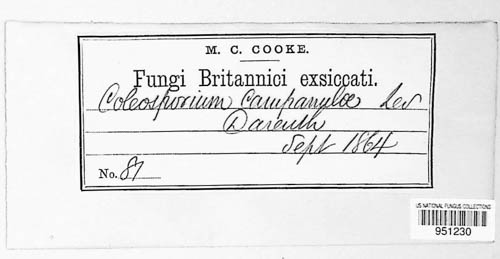 M. C. COOKE.
Fungi Britannici exsiccati.
Coleosporium campanulæ Lev
Darenth
Sept 1864
No. 87
US NATIONAL FUNGUS COLLECTIONS
951230